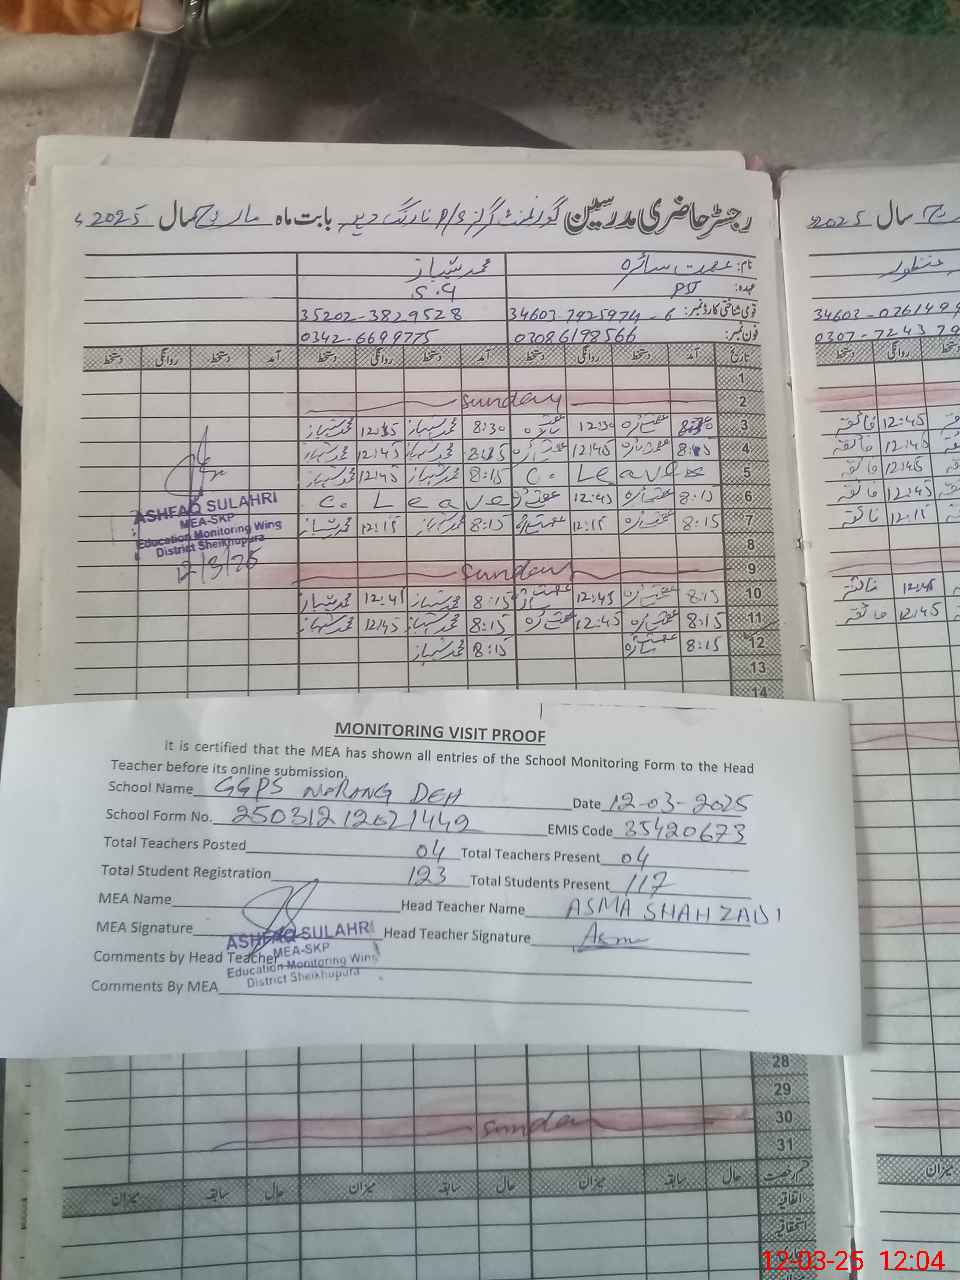 رجسٹر حاضری مدرسین گورنمنٹ گرلز P/S نارنگ ڈیہہ بابت ماہ مارچ سال 2025ء
سال 2025
نام: عصمت سائرہ محمد شہباز
عہدہ: PST S.G
قومی شناختی کارڈ نمبر: 34603-7925974-6 35202-3829528
34603-0761499
فون نمبر: 03086198566 0342-6699775
0307-7243
تاریخ آمد دستخط روانگی دستخط آمد دستخط روانگی دستخط آمد دستخط روانگی دستخط
1
2 Sunday
3 8:30 12:30 8:30 محمد شہباز 12:45 محمد شہباز
12:45 فائقہ
4 8:15 12:45 8:15 محمد شہباز 12:45 محمد شہباز
12:45 فائقہ
5 C. Leave 8:15 محمد شہباز 12:45 محمد شہباز
12:45 فائقہ
6 8:15 12:45 C. Leave
12:45 فائقہ
7 8:15 12:15 8:15 محمد شہباز 12:15 محمد شہباز
12:15 فائقہ
8
9 Sunday
10 8:15 12:45 8:15 محمد شہباز 12:41 محمد شہباز
12:45 فائقہ
11 8:15 12:45 8:15 محمد شہباز 12:45 محمد شہباز
12:45 فائقہ
12 8:15 8:15 محمد شہباز
13
14
ASHFAQ SULAHRI
MEA-SKP
Education Monitoring Wing
District Sheikhupura
12/3/25
MONITORING VISIT PROOF
It is certified that the MEA has shown all entries of the School Monitoring Form to the Head
Teacher before its online submission.
School Name GGPS NORANG DEH Date 12-03-2025
School Form No. 25031212021449 EMIS Code 35420673
Total Teachers Posted 04 Total Teachers Present 04
Total Student Registration 123 Total Students Present 117
MEA Name Head Teacher Name ASMA SHAHZADI
MEA Signature Head Teacher Signature Asm
ASHFAQ SULAHRI
MEA-SKP
Education Monitoring Wing
District Sheikhupura
Comments by Head Teacher
Comments By MEA
28
29
30 Sunday
31
قسم رخصت حال سابقہ میزان حال سابقہ میزان حال سابقہ میزان
میزان
اتفاقیہ
استحقاقیہ
12-03-25 12:04